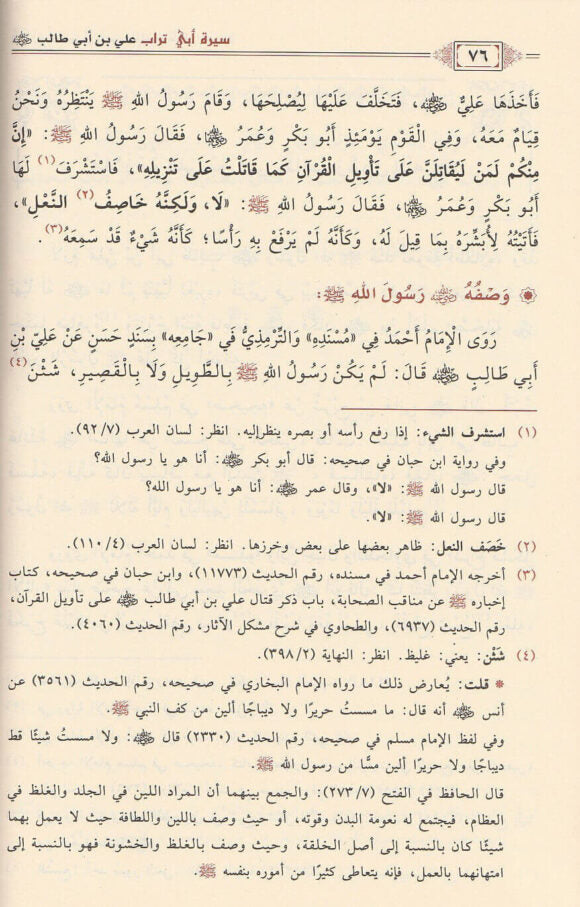 سيرة أبي تراب علي بن أبي طالب ﵁
٧٦
فَأَخَذَهَا عَلِيٌّ ﵁، فَتَخَلَّفَ عَلَيْهَا لِيُصْلِحَهَا، وَقَامَ رَسُولُ اللهِ ﷺ يَنْتَظِرُهُ وَنَحْنُ
قِيَامٌ مَعَهُ، وَفِي الْقَوْمِ يَوْمَئِذٍ أَبُو بَكْرٍ وَعُمَرُ ﵄، فَقَالَ رَسُولُ اللهِ ﷺ: «إِنَّ
مِنْكُمْ لَمَنْ لَيُقَاتِلَنَّ عَلَى تَأْوِيلِ الْقُرْآنِ كَمَا قَاتَلْتُ عَلَى تَنْزِيلِهِ»، فَاسْتَشْرَفَ(١) لَهَا
أَبُو بَكْرٍ وَعُمَرُ ﵄، فَقَالَ رَسُولُ اللهِ ﷺ: «لَا، وَلَكِنَّهُ خَاصِفُ(٢) النَّعْلِ»،
فَأَتَيْتُهُ لِأُبَشِّرَهُ بِمَا قِيلَ لَهُ، وَكَأَنَّهُ لَمْ يَرْفَعْ بِهِ رَأْسًا؛ كَأَنَّهُ شَيْءٌ قَدْ سَمِعَهُ(٣).
وَصْفُهُ ﵁ رَسُولَ اللهِ ﷺ:
رَوَى الْإِمَامُ أَحْمَدُ فِي «مُسْنَدِهِ» وَالتِّرْمِذِيُّ فِي «جَامِعِه» بِسَنَدٍ حَسَنٍ عَنْ عَلِيِّ بْنِ
أَبِي طَالِبٍ ﵁ قَالَ: لَمْ يَكُنْ رَسُولُ اللهِ ﷺ بِالطَّوِيلِ وَلَا بِالْقَصِيرِ، شَثْنَ(٤)
(١) استشرف الشيء: إذا رفع رأسه أو بصره ينظر إليه. انظر: لسان العرب (٩٢/٧).
وفي رواية ابن حبان في صحيحه: قال أبو بكر ﵁: أنا هو يا رسول الله؟
قال رسول الله ﷺ: «لا»، وقال عمر ﵁: أنا هو يا رسول الله؟
قال رسول الله ﷺ: «لا».
(٢) خَصَف النعل: ظاهر بعضها على بعض وخرزها. انظر: لسان العرب (١١٠/٤).
(٣) أخرجه الإمام أحمد في مسنده، رقم الحديث (١١٧٧٣)، وابن حبان في صحيحه، كتاب
إخباره ﷺ عن مناقب الصحابة، باب ذكر قتال علي بن أبي طالب ﵁ على تأويل القرآن،
رقم الحديث (٦٩٣٧)، والطحاوي في شرح مشكل الآثار، رقم الحديث (٤٠٦٠).
(٤) شَثْن: يعني: غليظ. انظر: النهاية (٣٩٨/٢).
* قلت: يُعارض ذلك ما رواه الإمام البخاري في صحيحه، رقم الحديث (٣٥٦١) عن
أنس ﵁ أنه قال: ما مسستُ حريرًا ولا ديباجًا ألين من كف النبي ﷺ.
وفي لفظ الإمام مسلم في صحيحه، رقم الحديث (٢٣٣٠) قال ﵁: ولا مسستُ شيئًا قط
ديباجًا ولا حريرًا ألين مسًّا من رسول الله ﷺ.
قال الحافظ في الفتح (٢٧٣/٧): والجمع بينهما أن المراد اللين في الجلد والغلظ في
العظام، فيجتمع له نعومة البدن وقوته، أو حيث وصف باللين واللطافة حيث لا يعمل بهما
شيئًا كان بالنسبة إلى أصل الخلقة، وحيث وصف بالغلظ والخشونة فهو بالنسبة إلى
امتهانهما بالعمل، فإنه يتعاطى كثيرًا من أموره بنفسه ﷺ.